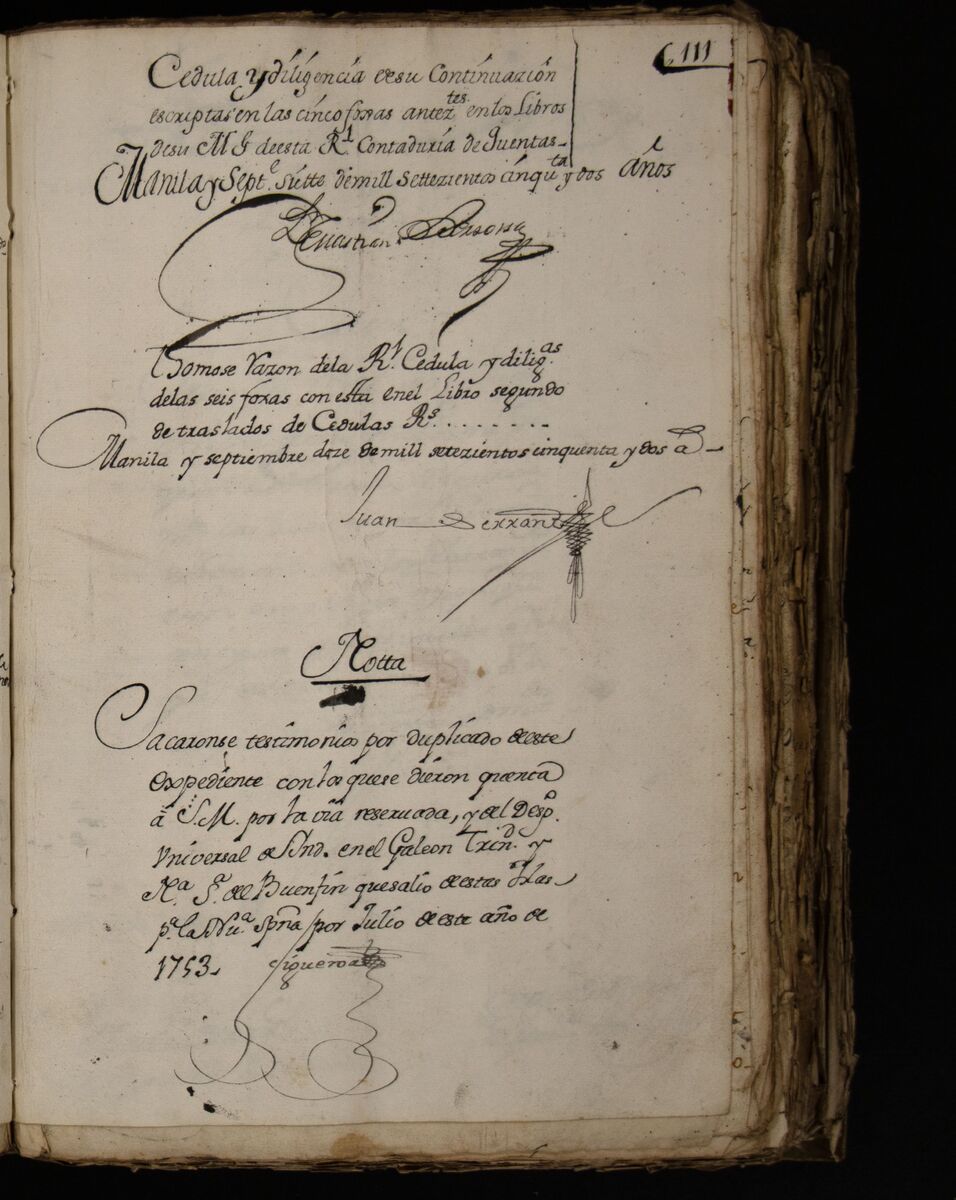 111
Cedula y diligencia de su Continuazion
escriptas en las cinco foxas antez.tes en los Libros
de su M.g de esta R.l Contaduria de Quentas
Manila y Sept.e siette de mill Settezientos cinqu.ta y dos años
Thomose razon de la R.l Cedula y dilig.as
de las seis foxas con esta en el Libro segundo
de traslados de Cedulas R.s ........
Manila y septiembre doze de mill setezientos cinquenta y dos a
Juan Serrano
Notta
Sacaronse testimonios por duplicado de este
expediente con los que se dieron quenta
a S.M. por la via reseruada, y del Desp.o
Vniversal de Ind. en el Galeon Trin.d y
N.a S.a del Buenfin que salio de estas Yslas
p.a la Nu.a Spña por Julio de este año de
1753. Figueroa